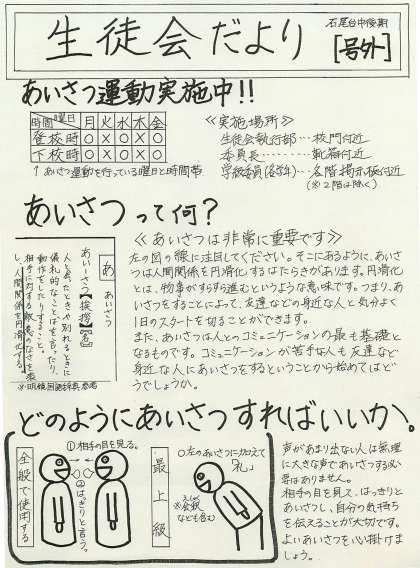 生徒会だより
石尾台中後期
[号外]
あいさつ運動実施中!!
時間 曜日 月 火 水 木 金
登校時 ○ × ○ × ○
下校時 ○ × ○ × ○
↑あいさつ運動を行っている曜日と時間帯
≪実施場所≫
生徒会執行部…校門付近
委員長………靴箱付近
学級委員(各学年)…各階掲示板付近
(※2階は除く)
あいさつって何?
あ あいさつ
あい-さつ【挨拶】【名】
人と会ったときや別れるときに
儀礼的なことばを言ったり、
動作をしたりすること。
相手に対する敬意のなさを表
し、人間関係を円滑化する。
※明鏡国語辞典参考
≪あいさつは非常に重要です≫
左の図の線に注目してください。そこにあるように、あいさ
つは人間関係を円滑化するはたらきがあります。円滑化
とは、物事がすらすら進むというような意味です。つまり、あい
さつをすることによって、友達などの身近な人と気分よく
1日のスタートを切ることができます。
また、あいさつは人とのコミュニケーションの最も基礎と
なるものです。コミュニケーションが苦手な人も友達など
身近な人にあいさつをするということから始めてはど
うでしょうか。
どのようにあいさつすればいいか。
全般で使用する
①相手の目を見る。
②はっきりと言う。
最上級
○左のあいさつに加えて
「礼」
※会釈
えしゃく
なども含む
声があまり出ない人は無理
に大きな声であいさつする必
要はありません。
相手の目を見て、はっきりと
あいさつし、自分の気持ち
を伝えることが大切です。
よいあいさつを心掛けま
しょう。